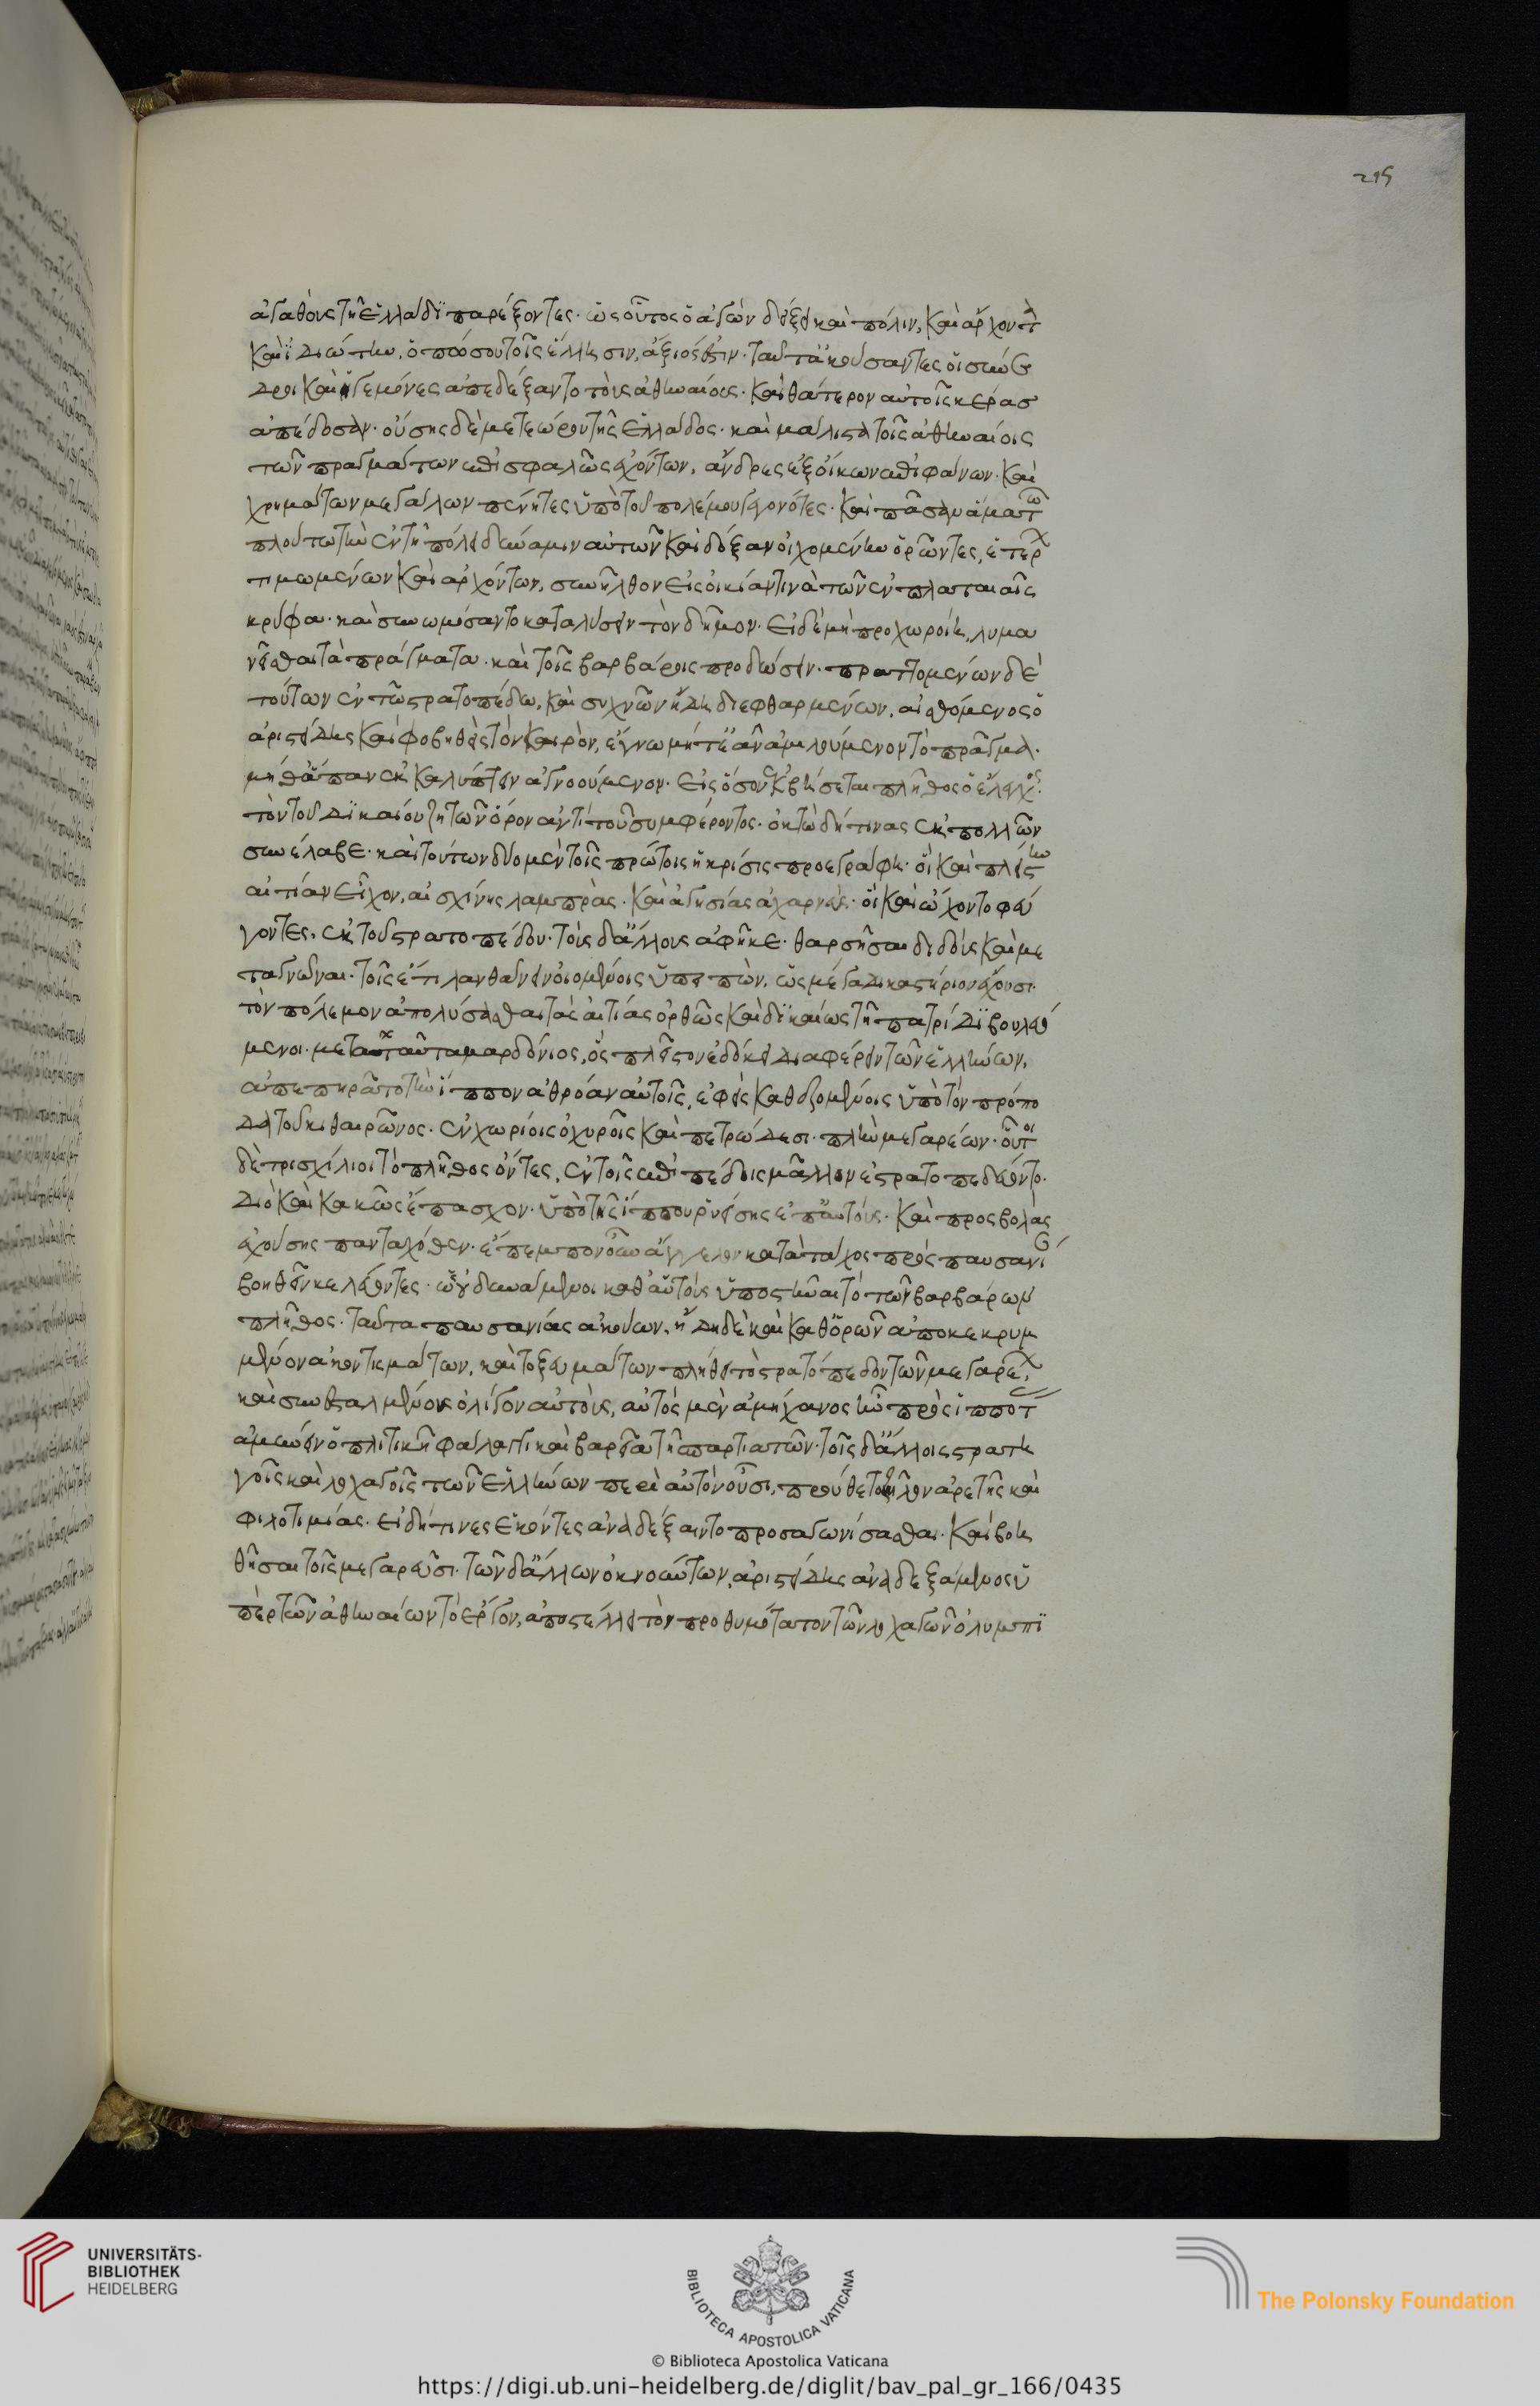 ἀγαθοὺς τῆ ἑλλάδι παρέξοντες· ὡς οὗτος ὁ ἀγὼν δείξει καὶ πόλιν, καὶ ἄρχοντα
καὶ ἰδιώτην, ὁπόσου τοῖς ἕλλησιν, ἄξιός ἐστιν· ταῦτα ἀκούσαντες οἱ σύνε
δροι καὶ ἡγεμόνες ἀπεδέξαντο τοὺς ἀθηναίους· καὶ θάτερον αὐτοῖς κέρας
ἀπέδοσαν· οὔσης δὲ μετεώρου τῆς ἑλλάδος· καὶ μάλιστα τοῖς ἀθηναίοις
τῶν πραγμάτων ἐπισφαλῶς ἐχόντων, ἄνδρες ἐξ οἴκων ἐπιφανῶν· καὶ
χρημάτων μεγάλων πένητες ὑπὸ τοῦ πολέμου γεγονότες· καὶ πᾶσαν ἅμα τῶ
πλούτω τὴν ἐν τῆ πόλει δύναμιν αὐτῶν καὶ δόξαν οἰχομένην ὁρῶντες, ἑτέρων
τιμωμένων καὶ ἀρχόντων, συνῆλθον εἰς οἰκίαν τινὰ τῶν ἐν πλαταιαῖς
κρύφα· καὶ συνωμόσαντο καταλύσειν τὸν δῆμον· εἰ δὲ μὴ προχωροίη, λυμα
νεῖσθαι τὰ πράγματα· καὶ τοῖς βαρβάροις προδώσειν· πραττομένων δὲ
τούτων ἐν τῶ στρατοπέδω, καὶ συχνῶν ἤδη διεφθαρμένων, αἰσθόμενος ὁ
ἀριστείδης καὶ φοβηθεὶς τὸν καιρὸν, ἔγνω μήτε ἐᾶν ἀμελούμενον τὸ πρᾶγμα·
μήθ᾽ ἅπαν ἐκκαλύπτειν ἀγνοούμενον· εἰς ὅσον ἐκβήσεται πλῆθος ὁ ἔλεγχος
τὸν τοῦ δικαίου ζητῶν ὅρον ἀντὶ τοῦ συμφέροντος· ὀκτὼ δή τινας ἐκ πολλῶν
συνέλαβε· καὶ τούτων δύο μὲν τοῖς πρώτοις ἡ κρίσις προεγράφη· οἳ καὶ πλείστην
αἰτίαν εἶχον, αἰσχίνης λαμπρὰς· καὶ ἀγησίας ἀχαρνεὺς· οἳ καὶ ὤχοντο φεύ
γοντες· ἐκ τοῦ στρατοπέδου· τοὺς δ᾽ ἄλλους ἀφῆκε· θαρσῆσαι διδοὺς καὶ με
ταγνῶναι· τοῖς ἔτι λανθάνειν οἰομένοις ὑπειπὼν, ὡς μέγα δικαστήριον ἔχουσι
τὸν πόλεμον ἀπολύσασθαι τὰς αἰτίας ὀρθῶς καὶ δικαίως τῆ πατρίδι βουλευό
μενοι· μετὰ ταῦτα μαρδόνιος, ὃς πλεῖστον ἐδόκει διαφέρειν τῶν ἑλλήνων,
ἀπεπειρᾶτο τὴν ἵππον ἀθρόαν αὐτοῖς, ἐφεὶς καθεζομένοις ὑπὸ τὸν πρόπο
δα τοῦ κιθαιρῶνος· ἐν χωρίοις ὀχυροῖς καὶ πετρώδεσι· πλὴν μεγαρέων· οὗτοι
δὲ τρισχίλιοι τὸ πλῆθος ὄντες, ἐν τοῖς ἐπιπέδοις μᾶλλον ἐστρατοπεδεύοντο·
διὸ καὶ κακῶς ἔπασχον· ὑπὸ τῆς ἵππου ῥυείσης ἐπ᾽ αὐτοὺς· καὶ προσβολὰς
ἐχούσης πανταχόθεν· ἔπεμπον οὖν ἄγγελον κατὰ τάχος πρὸς παυσανίαν
βοηθεῖν κελεύοντες· ὡς οὐ δυνάμενοι καθ᾽ αὑτοὺς ὑποστῆναι τὸ τῶν βαρβάρων
πλῆθος· ταῦτα παυσανίας ἀκούων, ἤδη δὲ καὶ καθορῶν ἀποκεκρυμ
μένον ἀκοντισμάτων, καὶ τοξευμάτων πλήθει τὸ στρατόπεδον τῶν μεγαρέων,
καὶ συνεσταλμένους ὀλίγον αὐτοὺς, αὐτὸς μὲν ἀμήχανος ἦν πρὸς ἱππότας
ἀμύνειν ὁπλιτικῆ φάλαγγι καὶ βαρεῖα τῆ σπαρτιατῶν· τοῖς δ᾽ ἄλλοις στρατη
γοῖς καὶ λοχαγοῖς τῶν ἑλλήνων περὶ αὐτὸν οὖσι, προύθετο ζῆλον ἀρετῆς καὶ
φιλοτιμίας· εἰ δή τινες ἑκόντες ἀναδέξαιντο προσαγωνίσασθαι· καὶ βοη
θῆσαι τοῖς μεγαρεῦσι· τῶν δ᾽ ἄλλων ὀκνούντων, ἀριστείδης ἀναδεξάμενος ὑ
πὲρ τῶν ἀθηναίων τὸ ἔργον, ἀποστέλλει τὸν προθυμότατον τῶν λοχαγῶν ὀλυμπι
UNIVERSITÄTS-
BIBLIOTHEK
HEIDELBERG
BIBLIOTECA APOSTOLICA VATICANA
The Polonsky Foundation
© Biblioteca Apostolica Vaticana
https://digi.ub.uni-heidelberg.de/diglit/bav_pal_gr_166/0435